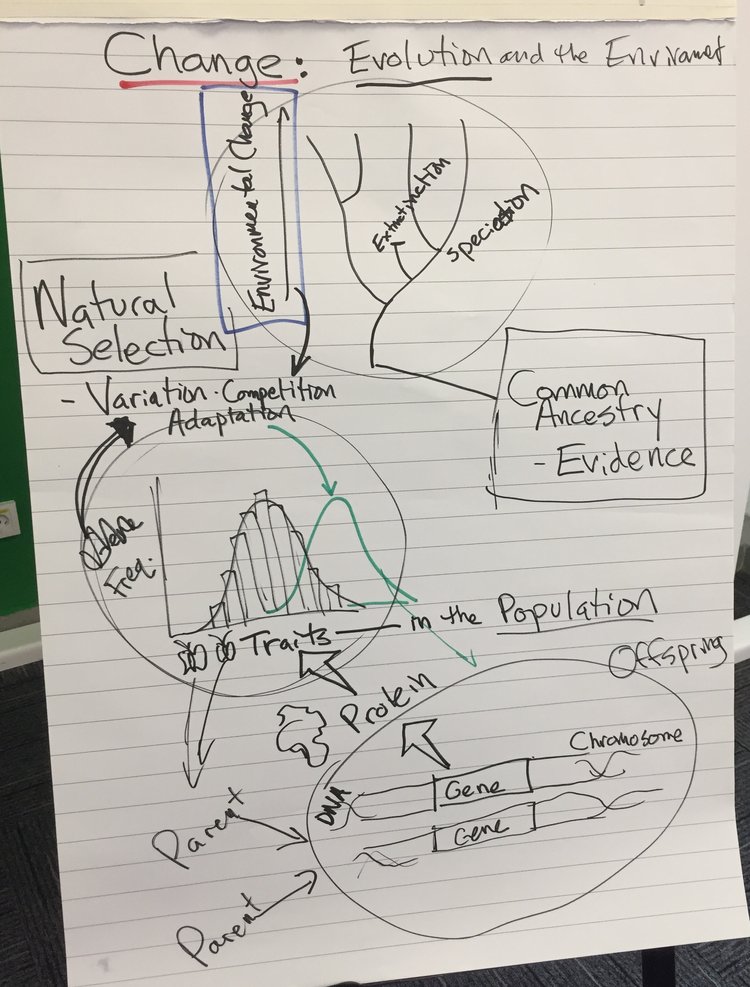 Change: Evolution and the Enviramet
Environmental Change
Extinctinction
Speciation
Natural
Selection
- Variation · Competition
Adaptation
Common
Ancestry
- Evidence
Freq.
Traits — in the Population
Offspring
Protein
Chromosome
DNA
Gene
Gene
Parent
Parent